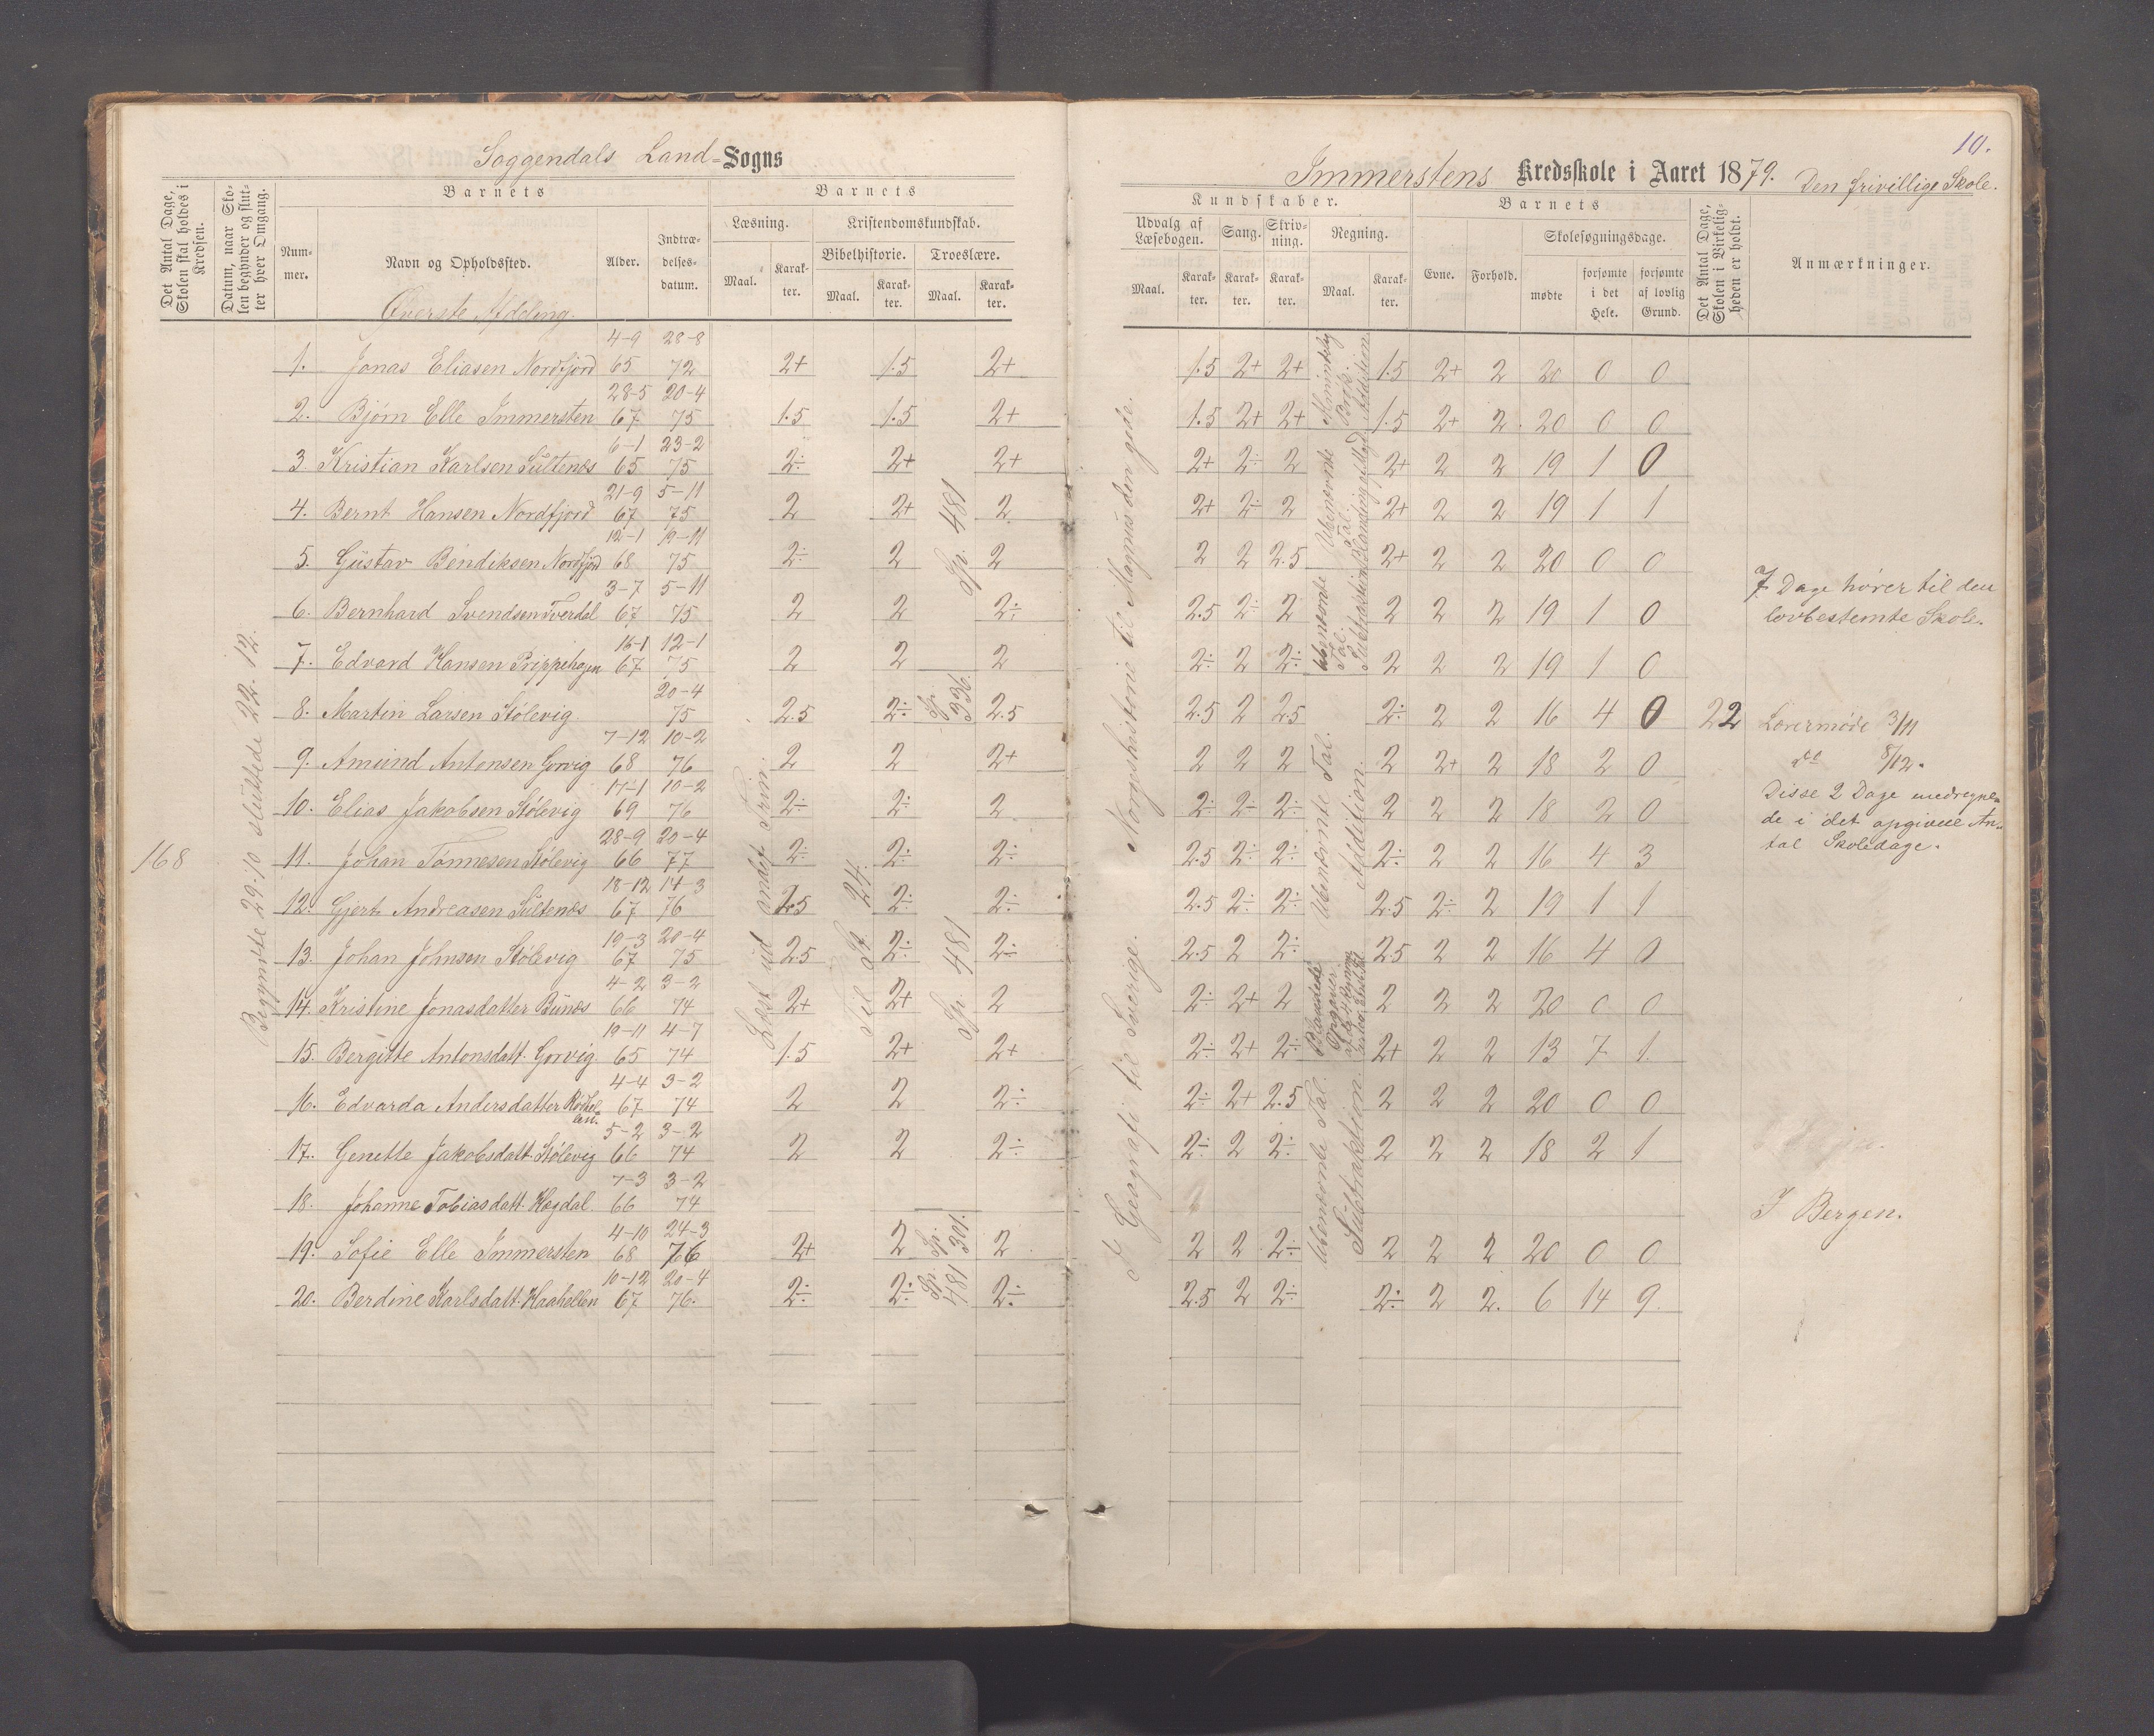 Soggendals Land=Sogns
Det Antal Dage, Skolen skal holdes i Kredsen.
Datum, naar Skolen begynder og slutter hver Omgang.
Barnets
Barnets
Nummer.
Navn og Opholdssted.
Alder.
Indtrædelsesdatum.
Læsning.
Kristendomskundskab.
Maal.
Karakter.
Bibelhistorie.
Troeslære.
Maal.
Karakter.
Maal.
Karakter.
Øverste Afdeling.
168
Begyndte 29.10 sluttede 22.12.
Læst ud andet Trin.
Til St. 24.
Sp. 481
Sp. 336.
Sp. 481
Sp. 301.
Sp. 481
1. Jonas Eliasen Nordfjord 4-9 65 28-8 72 2+ 1.5 2+
2. Bjørn Elle Immersten 28-5 67 20-4 75 1.5 1.5 2+
3. Kristian Karlsen Sültenæs 6-1 65 23-2 75 2÷ 2+ 2+
4. Bernt Hansen Nordfjord 21-9 67 5-11 75 2 2+ 2
5. Güstav Bendiksen Nordfjord 12-1 68 19-11 75 2÷ 2 2
6. Bernhard Svendsen Tverdal 3-7 67 5-11 75 2 2 2÷
7. Edvard Hansen Prippehagen 16-1 67 12-1 75 2 2 2
8. Martin Larsen Stølevig 20-4 75 2.5 2÷ 2.5
9. Amund Antonsen Gorvig 7-12 68 10-2 76 2 2 2+
10. Elias Jakobsen Stølevig 17-1 69 10-2 76 2÷ 2÷ 2
11. Johan Tønnesen Stølevig 28-9 66 20-4 77 2÷ 2÷ 2÷
12. Gjert Andreasen Sültenæs 18-12 67 14-3 76 2.5 2÷ 2÷
13. Johan Johnsen Stølevig 19-3 67 20-4 75 2.5 2÷ 2÷
14. Kristine Jonasdatter Bünæs 4-2 66 3-2 74 2+ 2+ 2
15. Bergitte Antonsdatt. Gorvig 19-11 65 4-7 74 1.5 2+ 2+
16. Edvarda Andersdatter 4-4 67 3-2 74 2 2 2÷
17. Genette Jakobsdatt. Stølevig 5-2 66 3-2 74 2 2 2÷
18. Johanne Tobiasdatt. Hogdal. 7-3 66 3-2 74
19. Sofie Elle Immersten 4-10 68 24-3 76 2+ 2 2
20. Berdine Karlsdatt. Haahellen 10-12 67 20-4 76. 2÷ 2÷ 2÷
10.
Immerstens Kredsskole i Aaret 1879. Den frivillige Skole.
Kundskaber.
Barnets
Det Antal Dage, Skolen i Virkeligheden er holdt.
Anmærkninger.
Udvalg af Læsebogen.
Sang.
Skrivning.
Regning.
Evne.
Forhold.
Skolesøgningsdage.
Maal.
Karakter.
Karakter.
Karakter.
Maal.
Karakter.
mødte
forsømte i det Hele.
forsømte af lovlig Grund.
I Geografi til Sverige. Norgeshistorie til Magnus den gode.
Almindelig Brøk. Addition
Ubenævnte Tal.
Ubenævnte Tal.
Ubenævnte Tal. Addition.
Blandede Opgaver
Ubenævnte Tal. Subtraktion.
1.5 2+ 2+ 1.5 2+ 2 20 0 0
1.5 2+ 2+ 1.5 2+ 2 20 0 0
2+ 2÷ 2 2+ 2 2 19 1 0
2+ 2÷ 2 2+ 2 2 19 1 1
2 2 2.5 2+ 2 2 20 0 0
2.5 2÷ 2 2 2 2 19 1 0
2÷ 2 2÷ 2 2 2 19 1 0
2.5 2 2.5 2÷ 2 2 16 4 0 22
2 2 2 2 2+ 2 18 2 0
2÷ 2÷ 2÷ 2 2 2 18 2 0
2.5 2÷ 2÷ 2÷ 2 2 16 4 3
2.5 2÷ 2÷ 2.5 2÷ 2 19 1 1
2.5 2 2÷ 2.5 2 2 16 4 0
2÷ 2+ 2 2 2 2 20 0 0
2÷ 2+ 2÷ 2+ 2 2 13 7 1.
2÷ 2+ 2.5 2 2 2 20 0 0
2÷ 2 2÷ 2 2 2 18 2 1
2 2 2÷ 2 2 2 20 0 0
2.5 2 2÷ 2÷ 2 2. 6 14 9
7 Dage hører til den
lovbestemte Skole.
Lærermøde 3/11
do 8/12.
Disse 2 Dage medregne=
de i det opgivne An=
tal Skoledage.
I Bergen.